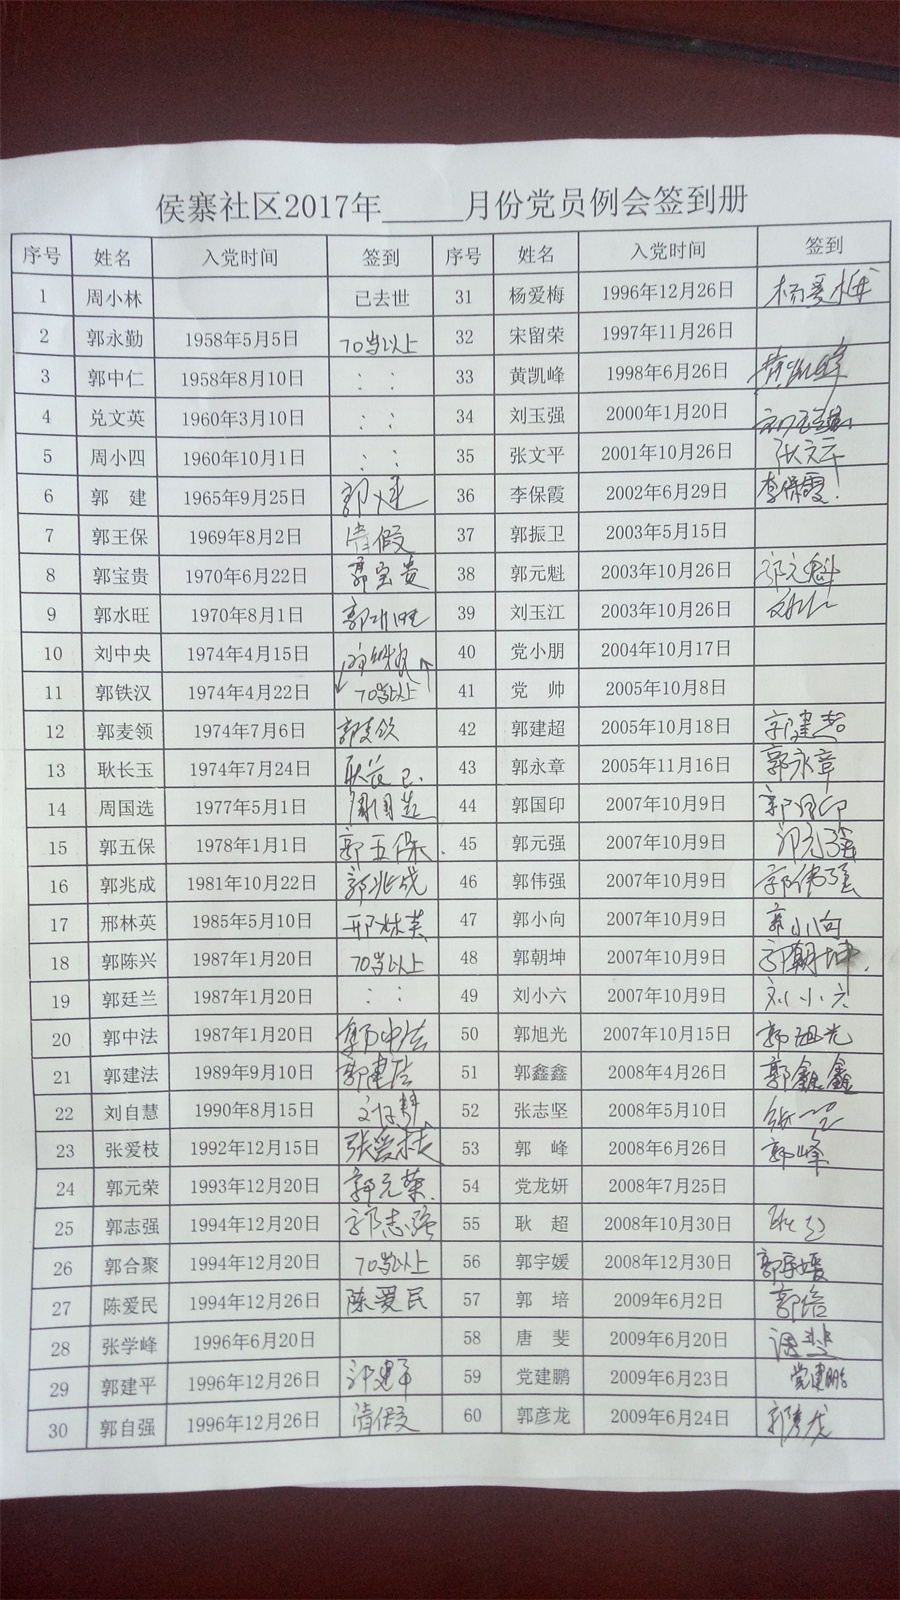 侯寨社区2017年______月份党员例会签到册
序号 姓名 入党时间 签到 序号 姓名 入党时间 签到
1 周小林 已去世 31 杨爱梅 1996年12月26日 杨爱梅
2 郭永勤 1958年5月5日 70岁以上 32 宋留荣 1997年11月26日
3 郭中仁 1958年8月10日 : : 33 黄凯峰 1998年6月26日 黄凯峰
4 兑文英 1960年3月10日 : : 34 刘玉强 2000年1月20日 刘玉强
5 周小四 1960年10月1日 : : 35 张文平 2001年10月26日 张文平
6 郭 建 1965年9月25日 郭建 36 李保霞 2002年6月29日 李保霞.
7 郭王保 1969年8月2日 请假 37 郭振卫 2003年5月15日
8 郭宝贵 1970年6月22日 郭宝贵 38 郭元魁 2003年10月26日 郭元魁
9 郭水旺 1970年8月1日 郭水旺 39 刘玉江 2003年10月26日
10 刘中央 1974年4月15日 40 党小朋 2004年10月17日
11 郭铁汉 1974年4月22日 70岁以上 41 党 帅 2005年10月8日
12 郭麦领 1974年7月6日 郭麦领 42 郭建超 2005年10月18日 郭建超
13 耿长玉 1974年7月24日 43 郭永章 2005年11月16日 郭永章
14 周国选 1977年5月1日 周国选 44 郭国印 2007年10月9日 郭国印
15 郭五保 1978年1月1日 郭五保. 45 郭元强 2007年10月9日 郭元强
16 郭兆成 1981年10月22日 郭兆成 46 郭伟强 2007年10月9日 郭伟强
17 邢林英 1985年5月10日 邢林英 47 郭小向 2007年10月9日 郭小向
18 郭陈兴 1987年1月20日 70岁以上 48 郭朝坤 2007年10月9日 郭朝坤.
19 郭廷兰 1987年1月20日 : : 49 刘小六 2007年10月9日 刘小六
20 郭中法 1987年1月20日 郭中法 50 郭旭光 2007年10月15日 郭旭光
21 郭建法 1989年9月10日 郭建法 51 郭鑫鑫 2008年4月26日 郭鑫鑫
22 刘自慧 1990年8月15日 52 张志坚 2008年5月10日
23 张爱枝 1992年12月15日 张爱枝 53 郭 峰 2008年6月26日 郭峰
24 郭元荣 1993年12月20日 郭元荣. 54 党龙妍 2008年7月25日
25 郭志强 1994年12月20日 郭志强 55 耿 超 2008年10月30日 耿超
26 郭合聚 1994年12月20日 70岁以上 56 郭宇媛 2008年12月30日 郭宇媛
27 陈爱民 1994年12月26日 陈爱民 57 郭 培 2009年6月2日 郭培
28 张学峰 1996年6月20日 58 唐 斐 2009年6月20日
29 郭建平 1996年12月26日 郭建平 59 党建鹏 2009年6月23日 党建鹏
30 郭自强 1996年12月26日 请假 60 郭彦龙 2009年6月24日 郭彦龙